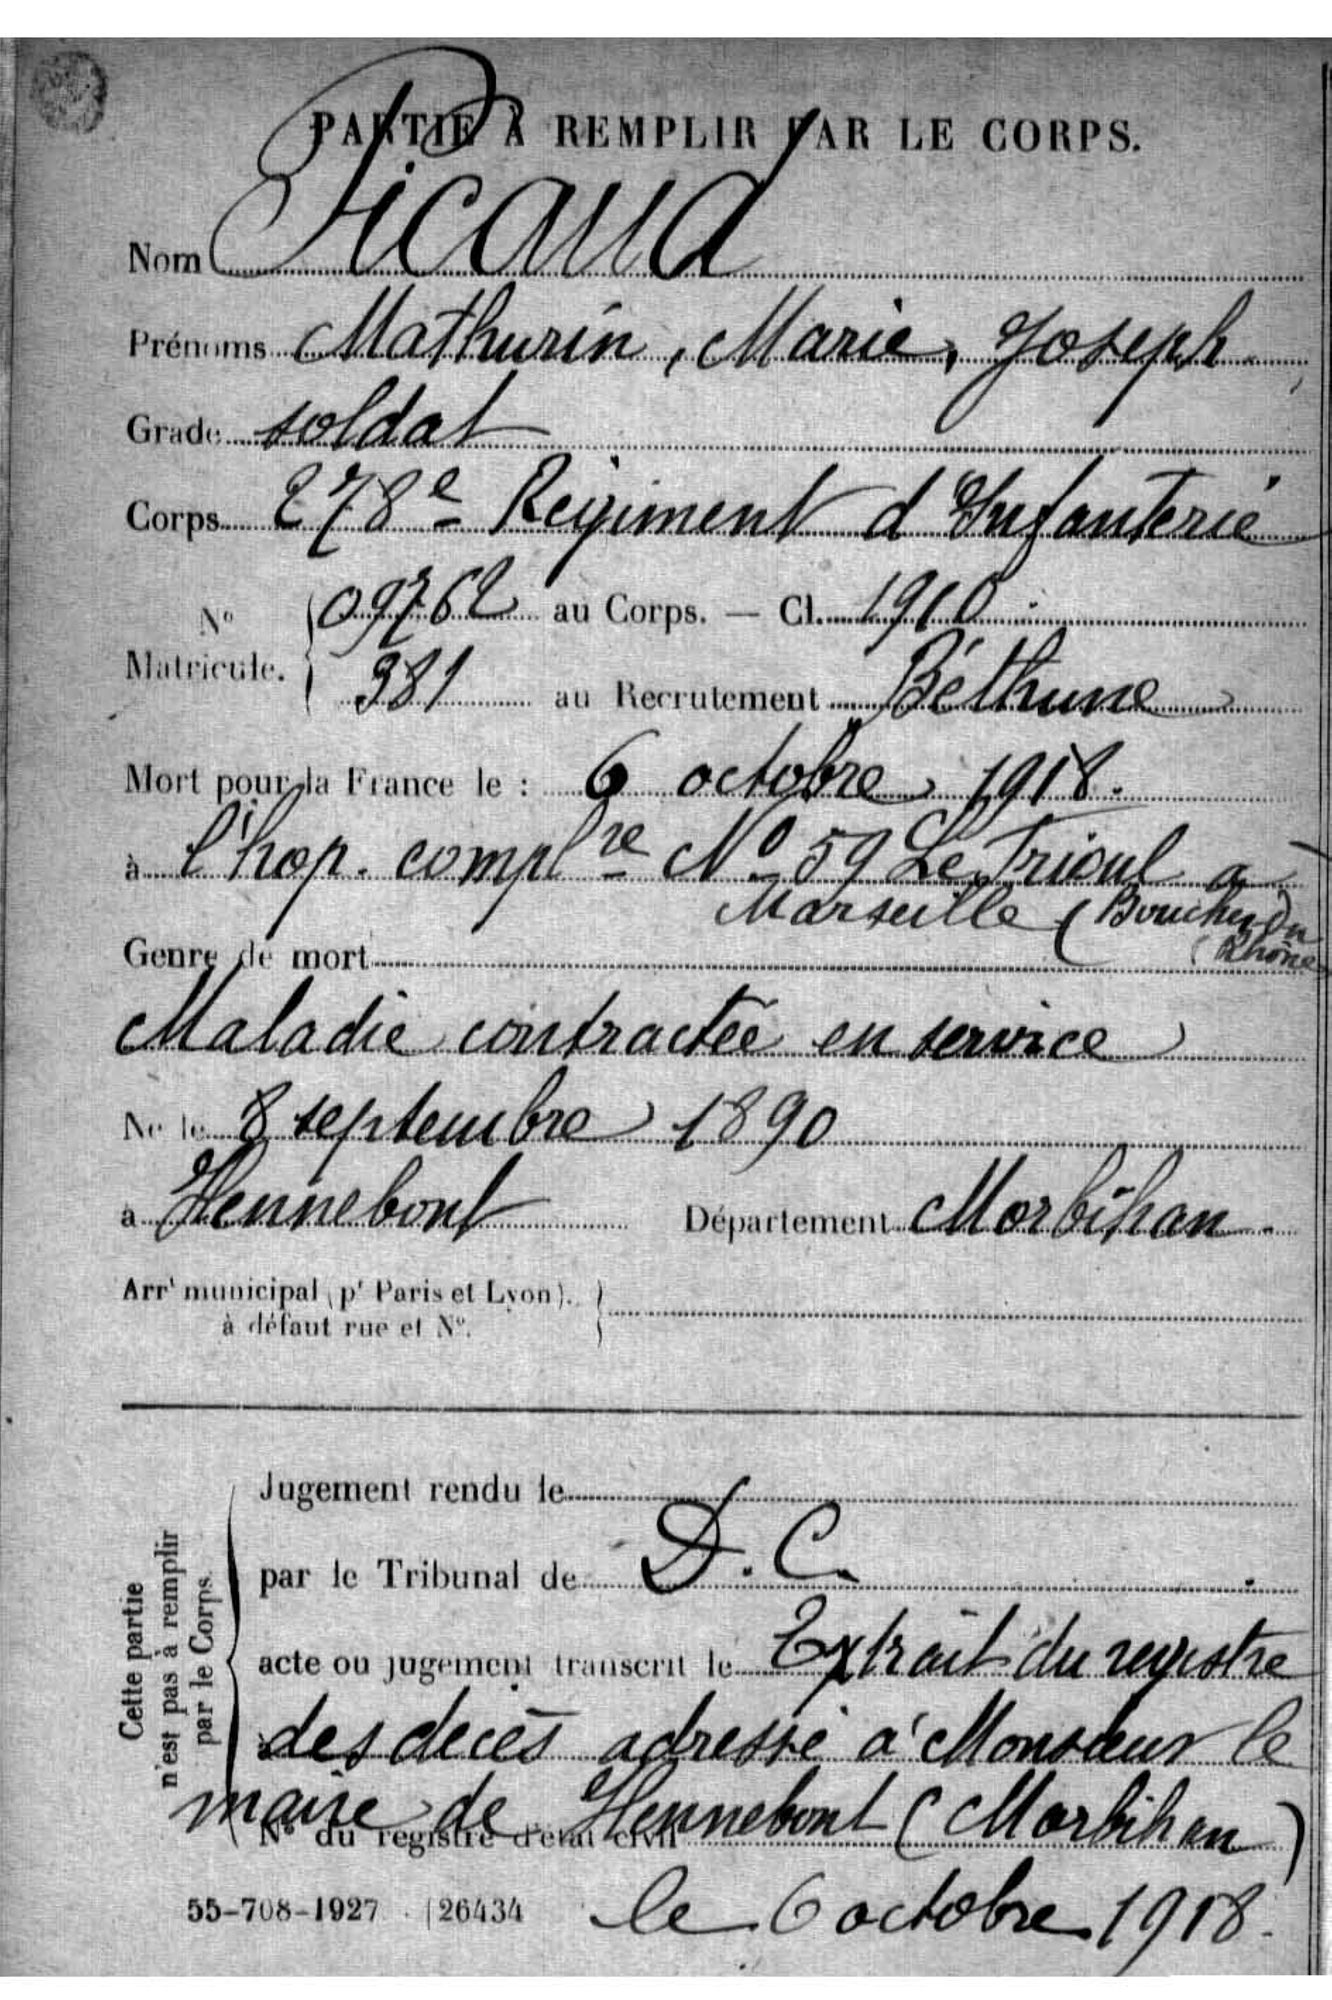 PARTIE À REMPLIR PAR LE CORPS.
Nom Picaud
Prénoms Mathurin, Marie, Joseph
Grade soldat
Corps 278e Régiment d'Infanterie
No Matricule. { 09762 au Corps. — Cl. 1910
981 au Recrutement Béthune
Mort pour la France le : 6 octobre 1918.
à l'hop. complre No 59 Le à
Marseille (Bouches du
Rhône
Genre de mort
Maladie contractée en service
Né le 8 septembre 1890
à Hennebont Département Morbihan.
Arrt municipal (pr Paris et Lyon).
à défaut rue et No.
Cette partie
n'est pas à remplir
par le Corps.
Jugement rendu le
par le Tribunal de D. C.
acte ou jugement transcrit le Extrait du registre
des décès adressé à Monsieur le
maire de Hennebont (Morbihan)
No du registre d'état civil
55-708-1927. [26434 le 6 octobre 1918.